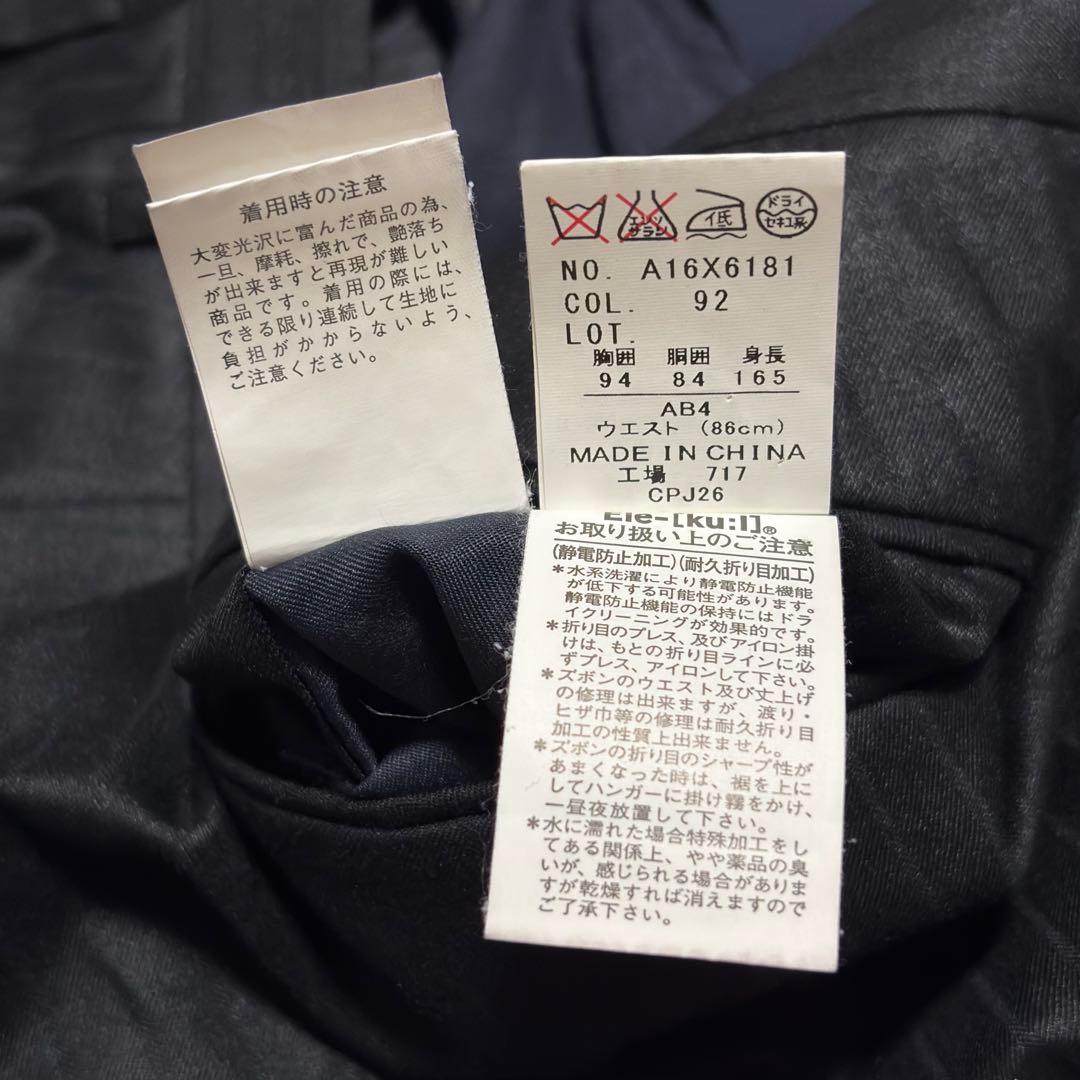 着用時の注意
大変光沢に富んだ商品の為、
一旦、摩耗、擦れで、艶落ち
が出来ますと再現が難しい
商品です。着用の際には、
できる限り連続して生地に
負担がかからないよう、
ご注意ください。
エンソ
サラシ
低
ドライ
セキユ系
NO. A16X6181
COL. 92
LOT.
胸囲 胴囲 身長
94 84 165
AB4
ウエスト (86cm)
MADE IN CHINA
工場 717
CPJ26
Ele-[ku:l]®
お取り扱い上のご注意
(静電防止加工)(耐久折り目加工)
*水系洗濯により静電防止機能
が低下する可能性があります。
静電防止機能の保持にはドラ
イクリーニングが効果的です。
*折り目のプレス、及びアイロン掛
けは、もとの折り目ラインに必
ずプレス、アイロンして下さい。
*ズボンのウエスト及び丈上げ
の修理は出来ますが、渡り・
ヒザ巾等の修理は耐久折り目
加工の性質上出来ません。
*ズボンの折り目のシャープ性が
あまくなった時は、裾を上に
してハンガーに掛け霧をかけ、
一昼夜放置して下さい。
*水に濡れた場合特殊加工をし
てある関係上、やや薬品の臭
いが、感じられる場合がありま
すが乾燥すれば消えますので
ご了承下さい。